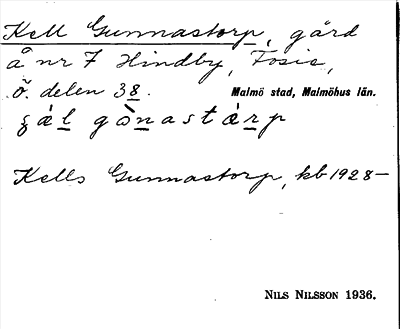 Kell Gunnastorp, gård
å nr 7 Hindby, Fosie,
ö. delen 38.
Malmö stad, Malmöhus län.
Kells Gunnastorp, kb 1928–
NILS NILSSON 1936.